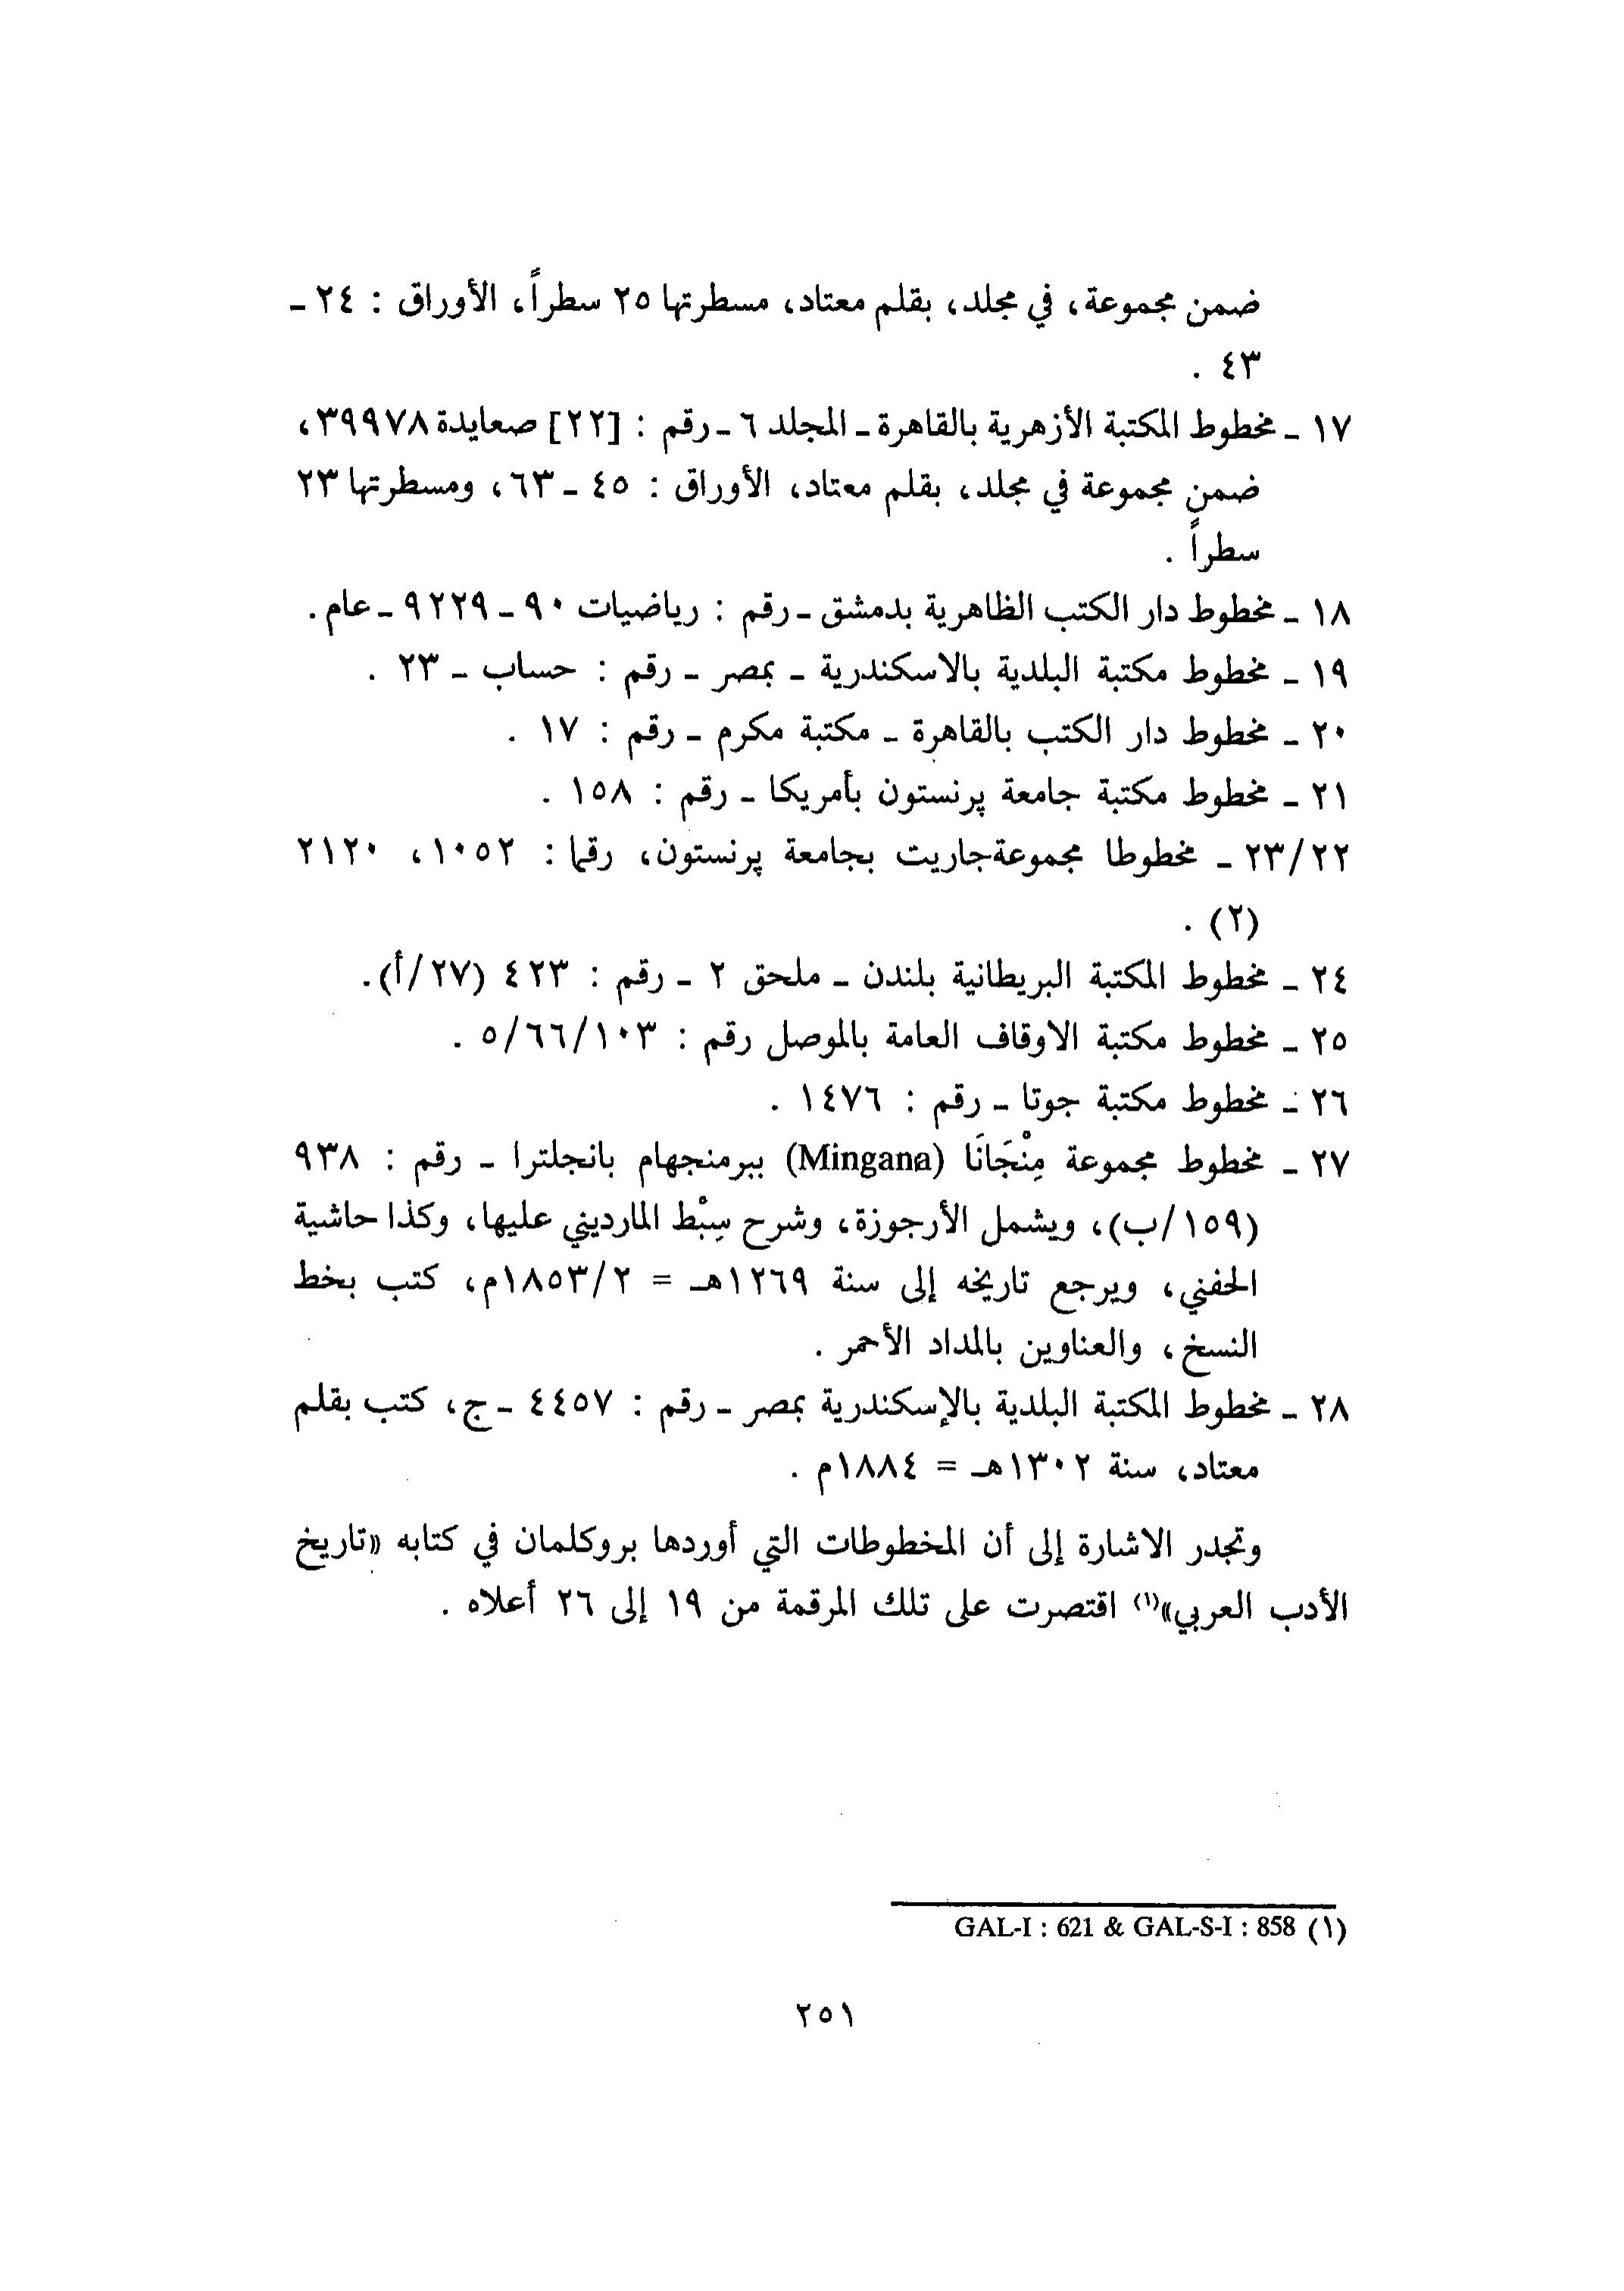 ضمن مجموعة، في مجلد، بقلم معتاد، مسطرتها ٢٥ سطراً، الأوراق : ٢٤ ـ
٤٣ .
١٧ ـ مخطوط المكتبة الأزهرية بالقاهرة ـ المجلد ٦ ـ رقم : [٢٢] صعايدة ٣٩٩٧٨،
ضمن مجموعة في مجلد، بقلم معتاد، الأوراق : ٤٥ ـ ٦٣، ومسطرتها ٢٣
سطراً .
١٨ ـ مخطوط دار الكتب الظاهرية بدمشق ـ رقم : رياضيات ٩٠ ـ ٩٢٢٩ ـ عام.
١٩ ـ مخطوط مكتبة البلدية بالاسكندرية ـ بمصر ـ رقم : حساب ـ ٢٣ .
٢٠ ـ مخطوط دار الكتب بالقاهرة ـ مكتبة مكرم ـ رقم : ١٧ .
٢١ ـ مخطوط مكتبة جامعة پرنستون بأمريكا ـ رقم : ١٥٨ .
٢٣/٢٢ ـ مخطوطا مجموعةجاريت بجامعة پرنستون، رقما : ١٠٥٢، ٢١٢٠
(٢) .
٢٤ ـ مخطوط المكتبة البريطانية بلندن ـ ملحق ٢ ـ رقم : ٤٢٣ (٢٧/أ).
٢٥ ـ مخطوط مكتبة الاوقاف العامة بالموصل رقم : ٥/٦٦/١٠٣ .
٢٦ ـ مخطوط مكتبة جوتا ـ رقم : ١٤٧٦ .
٢٧ ـ مخطوط مجموعة مِنْجَانَا (Mingana) ببرمنجهام بانجلترا ـ رقم : ٩٣٨
(١٥٩/ب)، ويشمل الأرجوزة، وشرح سِبْط المارديني عليها، وكذا حاشية
الحفني، ويرجع تاريخه إلى سنة ١٢٦٩هـ = ١٨٥٣/٢م، كتب بخط
النسخ، والعناوين بالمداد الأحمر .
٢٨ ـ مخطوط المكتبة البلدية بالإسكندرية بمصر ـ رقم : ٤٤٥٧ ـ ج، كتب بقلم
معتاد، سنة ١٣٠٢هـ = ١٨٨٤م .
وتجدر الاشارة إلى أن المخطوطات التي أوردها بروكلمان في كتابه «تاريخ
الأدب العربي»(١) اقتصرت على تلك المرقمة من ١٩ إلى ٢٦ أعلاه .
(١) GAL-I : 621 & GAL-S-I : 858
٢٥١